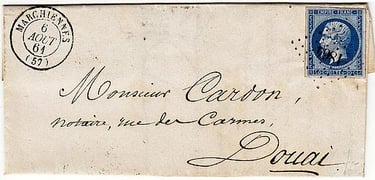 MARCHIENNES
6
AOUT
61
(57)
EMPIRE FRANC
Monsieur Cardon,
notaire, rue des Carmes,
Douai